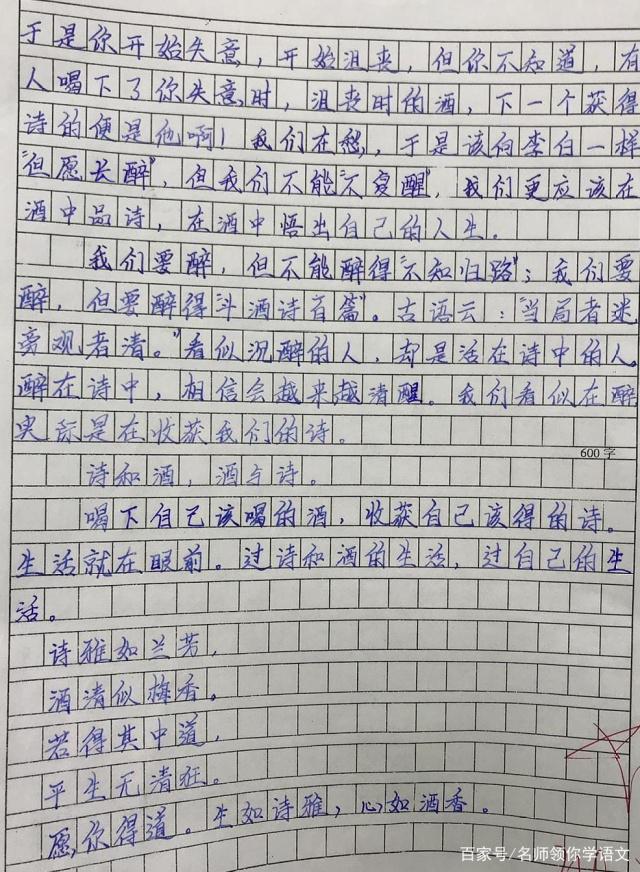 于是你开始失意，开始沮丧，但你不知道，有
人喝下了你失意时，沮丧时的酒，下一个获得
诗的便是他啊！我们在愁，于是该向李白一样
“但愿长醉”，但我们不能“不复醒”，我们更应该在
酒中品诗，在酒中悟出自己的人生。
我们要醉，但不能醉得“不知归路”；我们要
醉，但要醉得“斗酒诗百篇”。古语云：“当局者迷
旁观者清。”看似沉醉的人，却是活在诗中的人。
醉在诗中，相信会越来越清醒。我们看似在醉
实际是在收获我们的诗。
600字
诗和酒，酒与诗。
喝下自己该喝的酒，收获自己该得的诗。
生活就在眼前。过诗和酒的生活，过自己的生
活。
诗雅如兰芳，
酒清似梅香。
若得其中道，
平生无清狂。
愿你得道。生如诗雅，心如酒香。
百家号/名师领你学语文